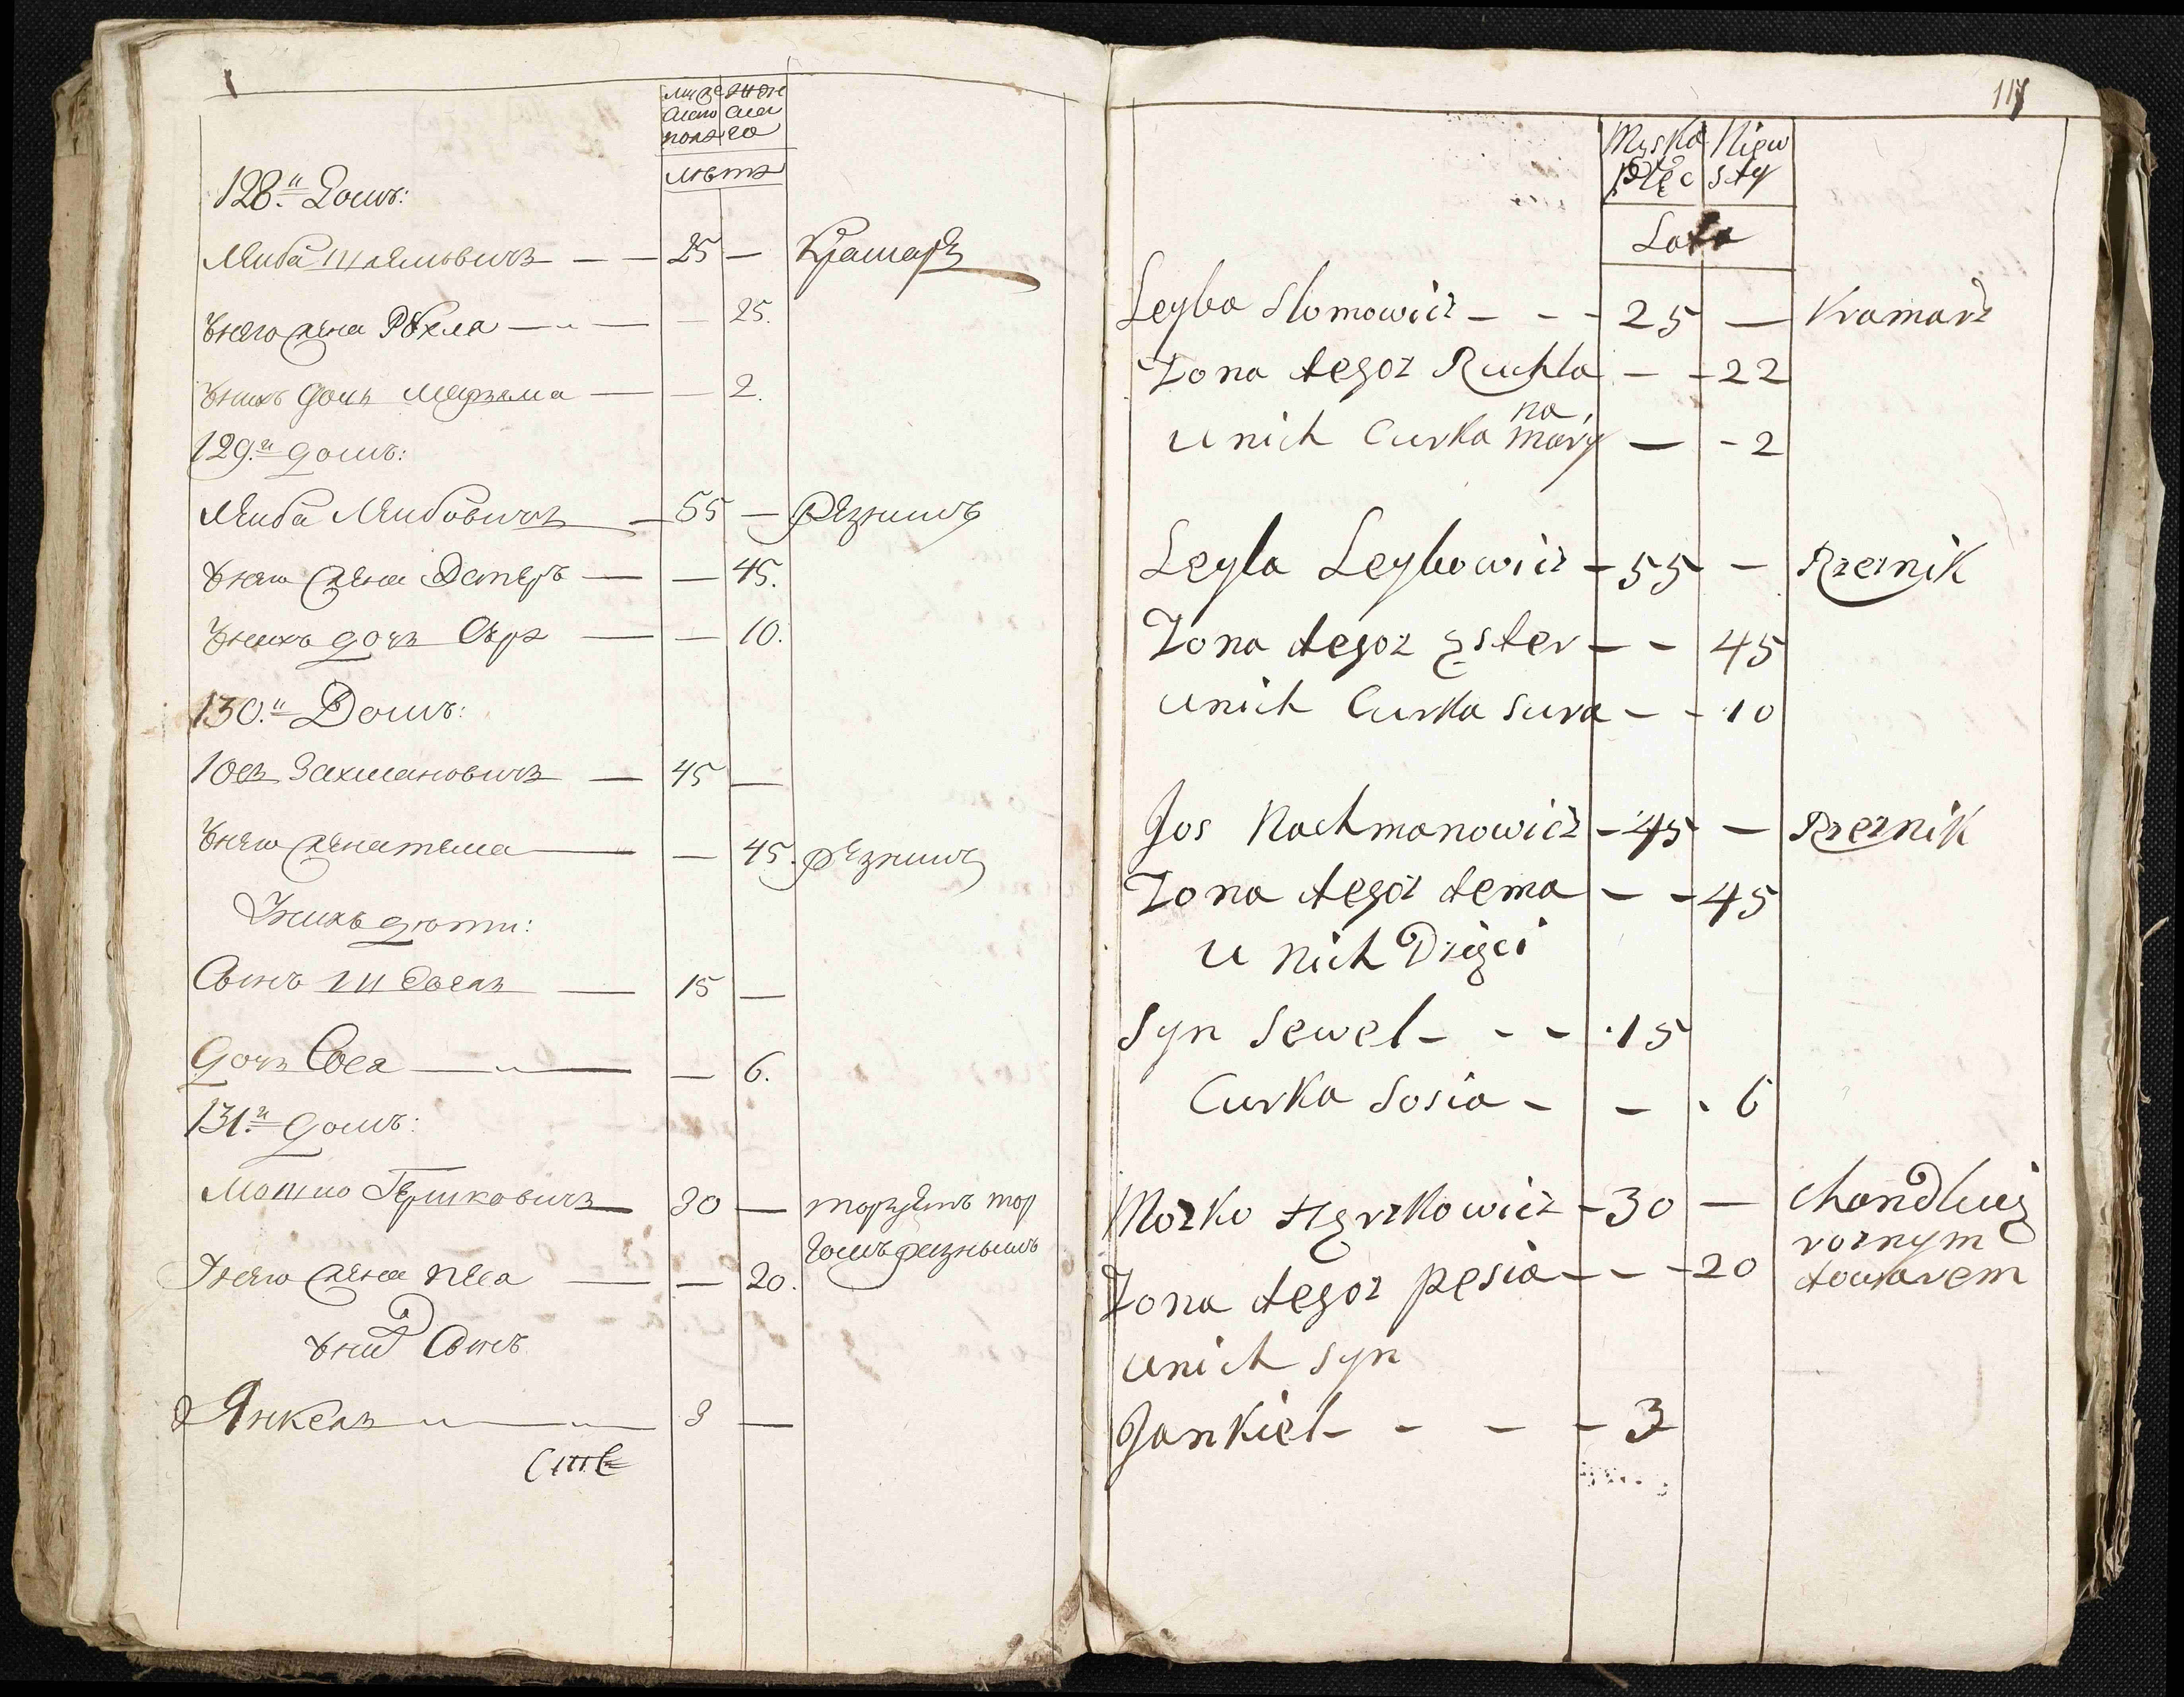 муже жен
ского ска
пола го
лѣтъ
128.й Домъ:
Лейба Шлемовичъ — — 25 — Крамаръ
Ȣнего жена Рȣхла — — — 25.
Ȣнихъ дочь Марьяма — — 2.
129.й домъ:
Лейба Лейбовичъ — 55 — Резникъ
Ȣнего жена Эстеръ — — 45.
Ȣнихъ дочь Сȣра — — 10.
130.й Домъ:
Іосъ Захмановичъ — 45 —
Ȣнего жена тема — — 45. резникъ
Ȣнихъ дѣти:
Сынъ Шевель — 15 —
Дочь Сося — — — 6.
131.й домъ:
Мошко Гершковичъ 30 — торгȣетъ тор
гомъ разнымъ
Ȣнего жена песа — — 20.
Ȣних Сынъ
Янкель — — 3 —
117
Męska Niew
Płeć sty
Lata
Leyba Slomowicz - - - 25 — Kramarz
Zona tegoz Ruchla — - 22
na
u nich Curka mary — - 2
Leyba Leybowicz - 55 - Rzeznik
Zona tegoz Ester - - 45
unich Curka Sura - - 10
Jos Nachmanowicz - 45 — Rzeznik
Zona tegoz tema - - 45
u nich Dzieci
Syn Sewel - - - 15
Curka Sosia - - - 6
Mozko Herzkowicz - 30 — chandluię
roznym
Zona tegoz pesia - - - 20 towarem
unich syn
Jankiel - - - - 3